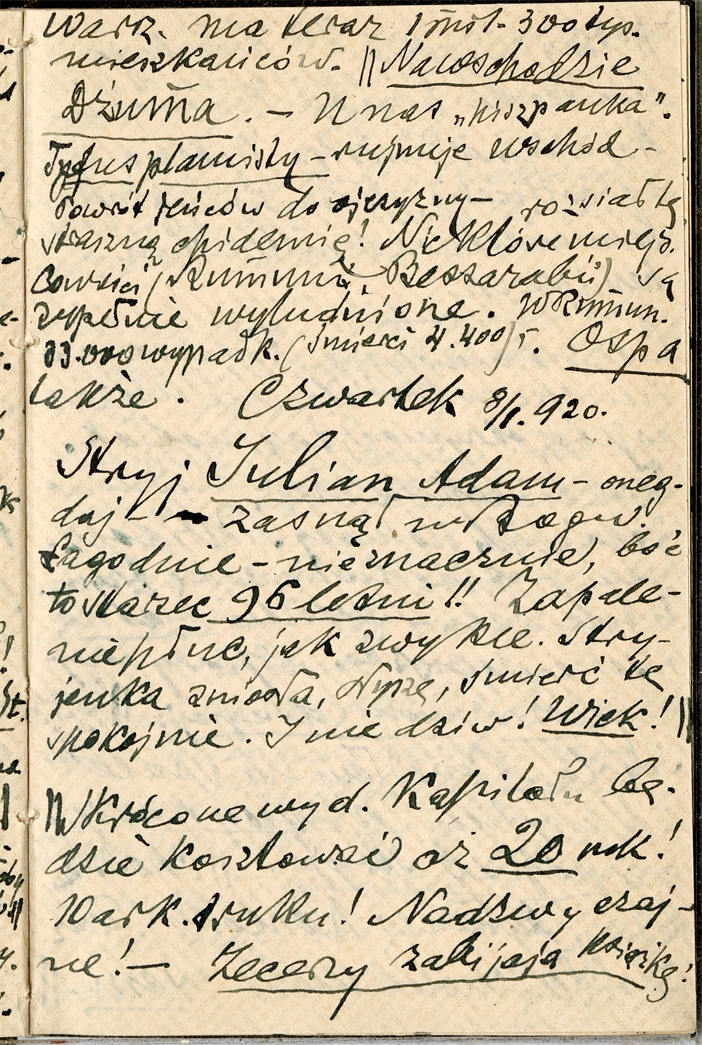 Warz. ma teraz 1 mil. 300 tys.
mieszkańców. || Na wschodzie
Dżuma. – U nas „hiszpanka”.
Tyfus plamisty – rujnuje wschód –
Powrót jeńców do ojczyzny – rozsiał tę
straszną epidemię! Niektóre miejs-
cowości (Rumunii, Bessarabii) są
zupełnie wyludnione. W Rumun.
33.000 wypadk. (śmierci 4.400) r. Ospa
także. Czwartek 8/I. 920.
Stryj Julian Adam – oneg-
daj – zasnął w Bogu.
Łagodnie – nieznacznie, boć
to starzec 96 letni!! Zapale-
nie płuc, jak zwykle. Stry-
jenka zniosła, słyszę, śmierć tę
spokojnie. I nie dziw! Wiek! ||
|| Skrócone wyd. Kapitału bę-
dzie kosztować aż 20 mk!
10 ark. druku! Nadzwyczaj-
ne! – Zecerzy zabijają książkę!